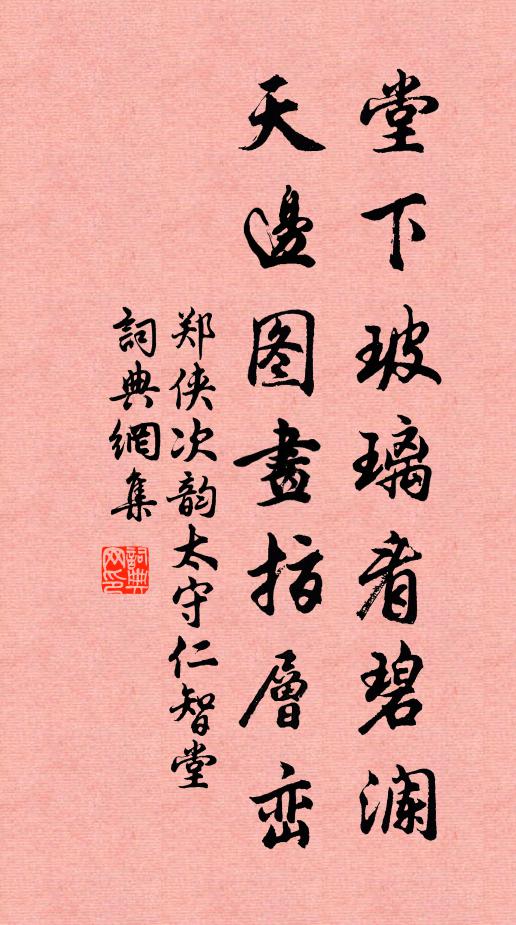 堂下玻璃看碧澜
天邊图畫指層峦
郑侠次韵太守仁智堂
詞典網集
詞典网印